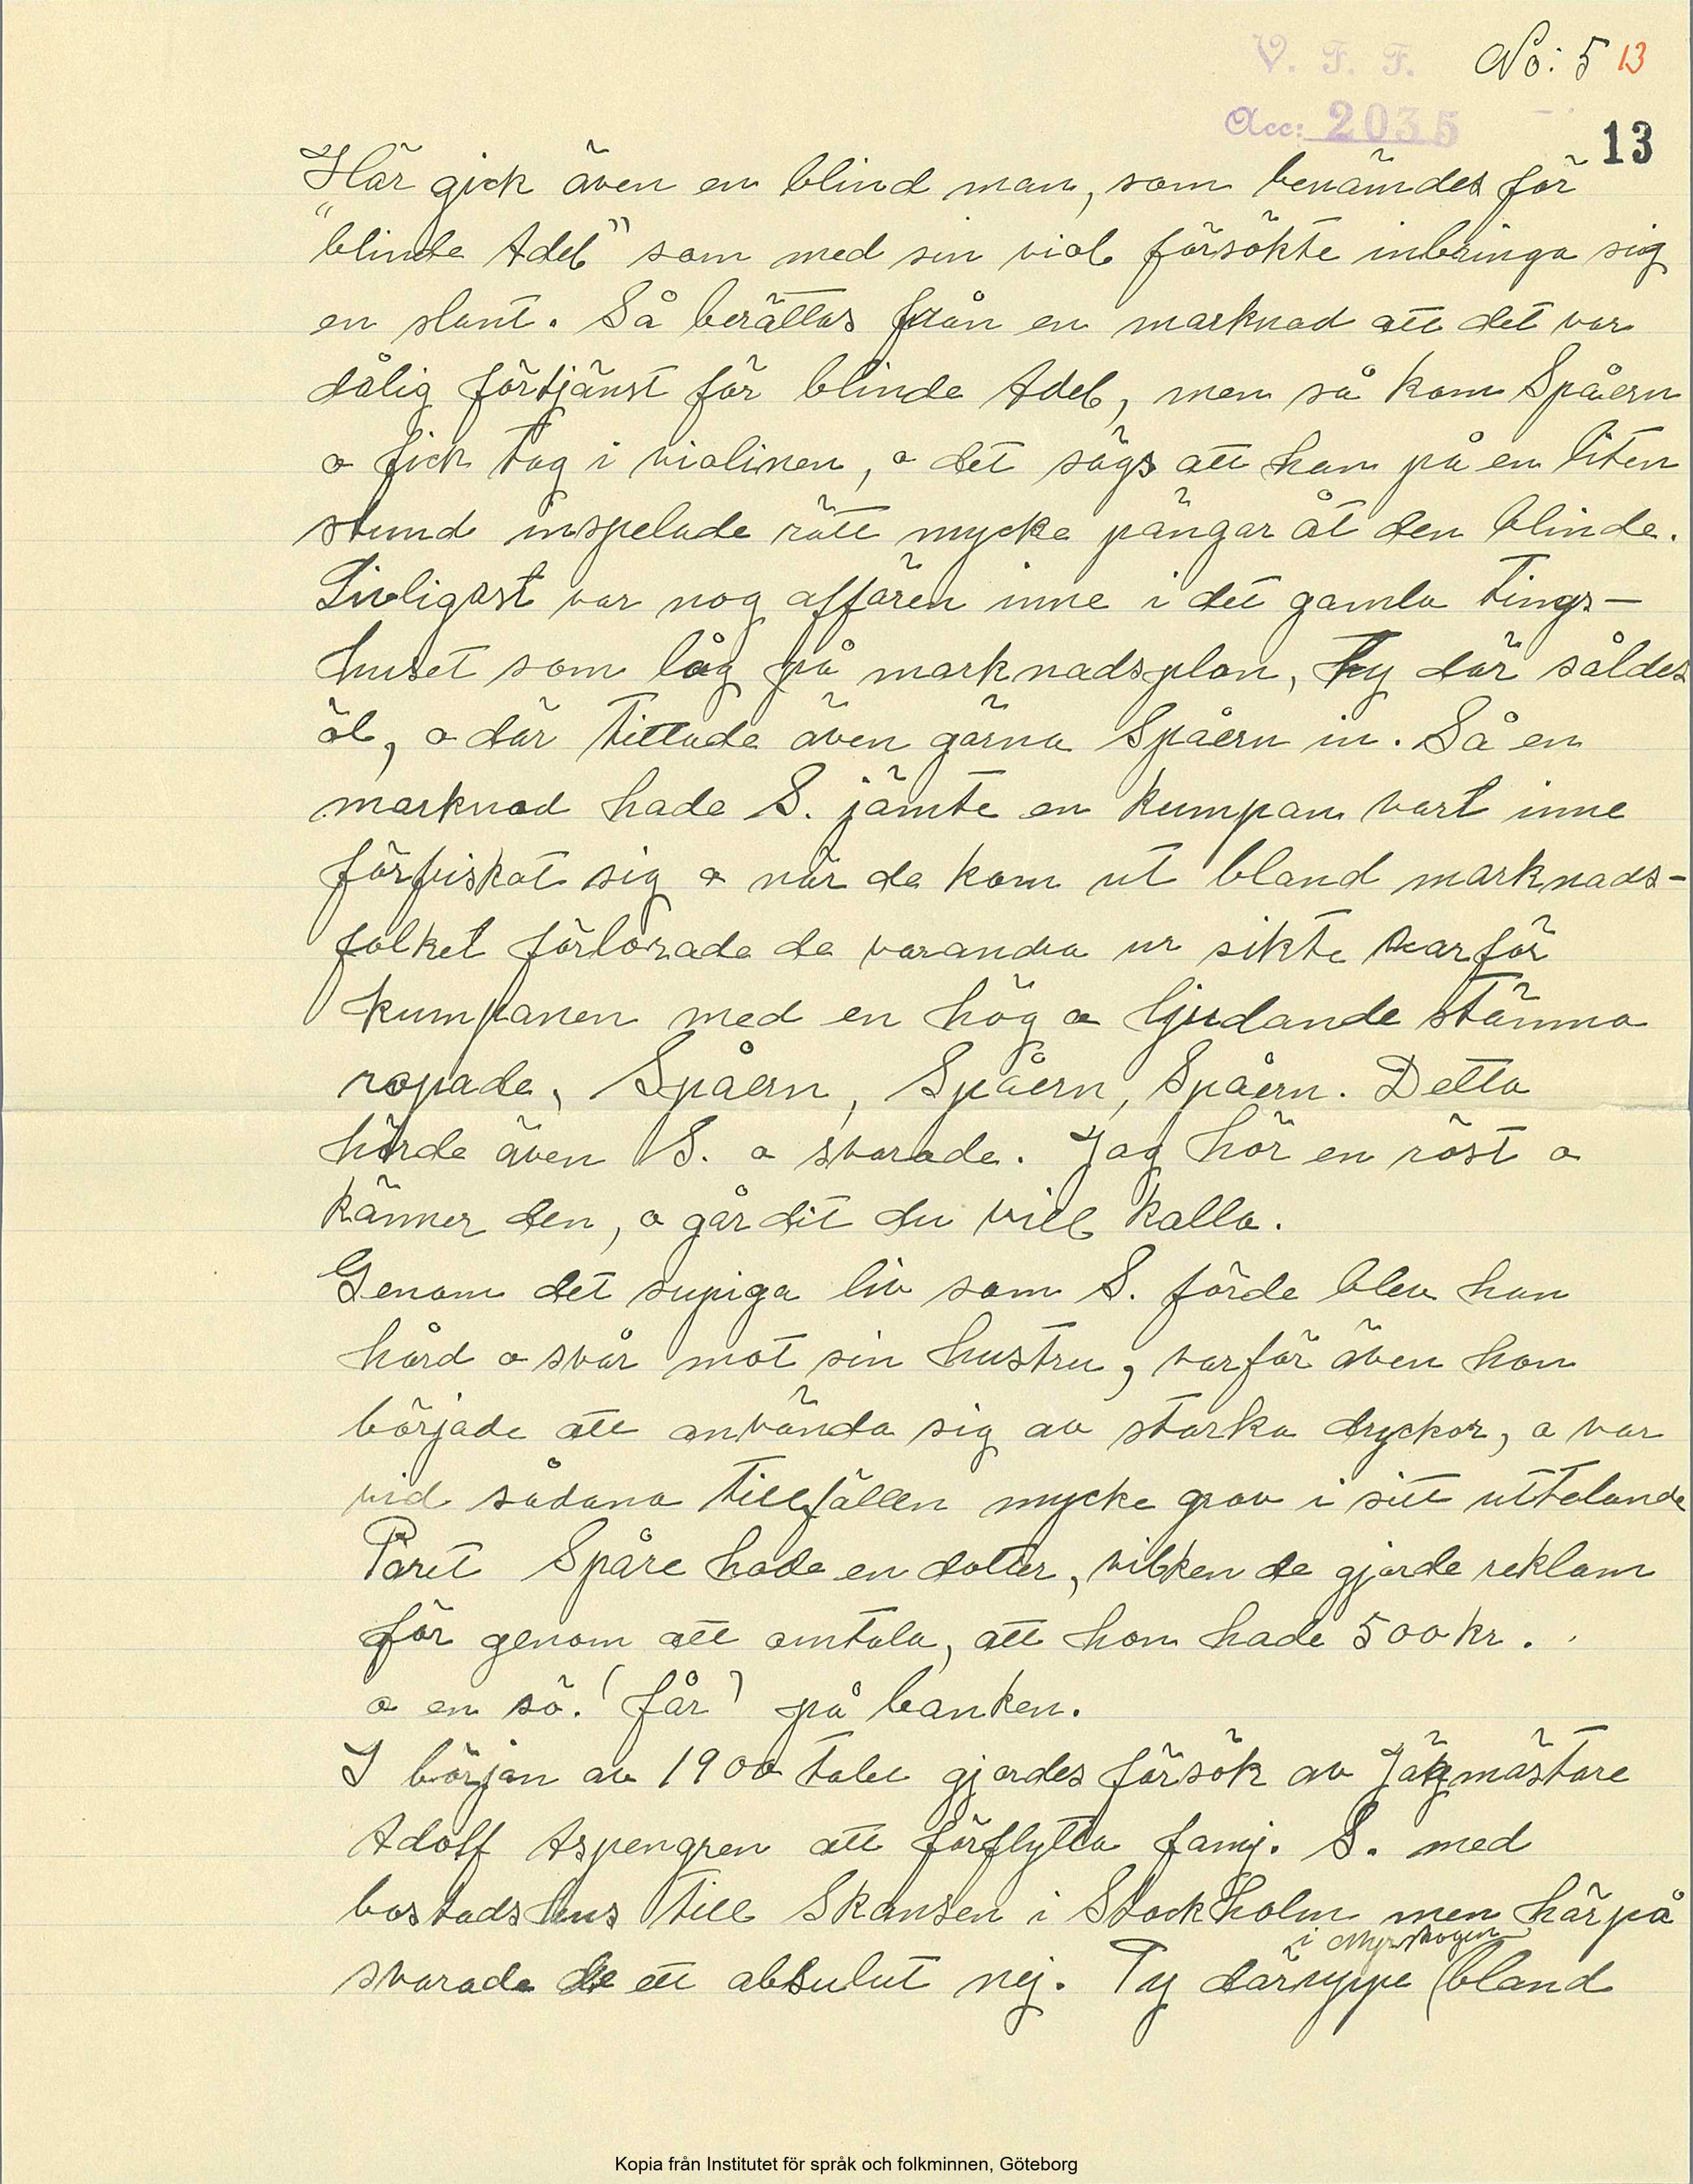 V. F. F. No: 5 13
Acc: 2035
13
Här gick även en blind man, som benämdes för
"blinde Adel" som med sin viol försökte inbringa sig
en slant. Så berättas från en marknad att det var
dålig förtjänst för blinde Adel, men så kom Spåern
o fick tag i violinen, o det sägs att han på en liten
stund inspelade rätt mycke pängar åt den blinde.
Livligast var nog affären inne i det gamla Tings-
huset som låg på marknadsplan, Ty där såldes
öl, o där tittade även gärna Spåern in. Så en
marknad hade S. jämte en kumpan vart inne
förfriskat sig o när de kom ut bland marknads-
folket förlorade de varandra ur sikte varför
kumpanen med en hög o ljudande stämma
ropade, Spåern, Spåern, Spåern. Detta
hörde även S. o svarade. Jag hör en röst o
känner den, o går dit du vill kalla.
Genom det supiga liv som S. förde blev han
hård o svår mot sin hustru, varför även hon
började att använda sig av starka drycker, o var
vid sådana tillfällen mycke grov i sitt uttalande
Paret Spåre hade en dotter, vilken de gjorde reklam
för genom att omtala, att hon hade 500 kr.
o en sö. (får) på banken.
I början av 1900 talet gjordes försök av Jägmästare
Adolf Aspengren att förflytta famj. S. med
bostadshus till Skansen i Stockholm men härpå
i Myrskogen
svarade de ett absulut nej. Ty däruppe (bland
Kopia från Institutet för språk och folkminnen, Göteborg